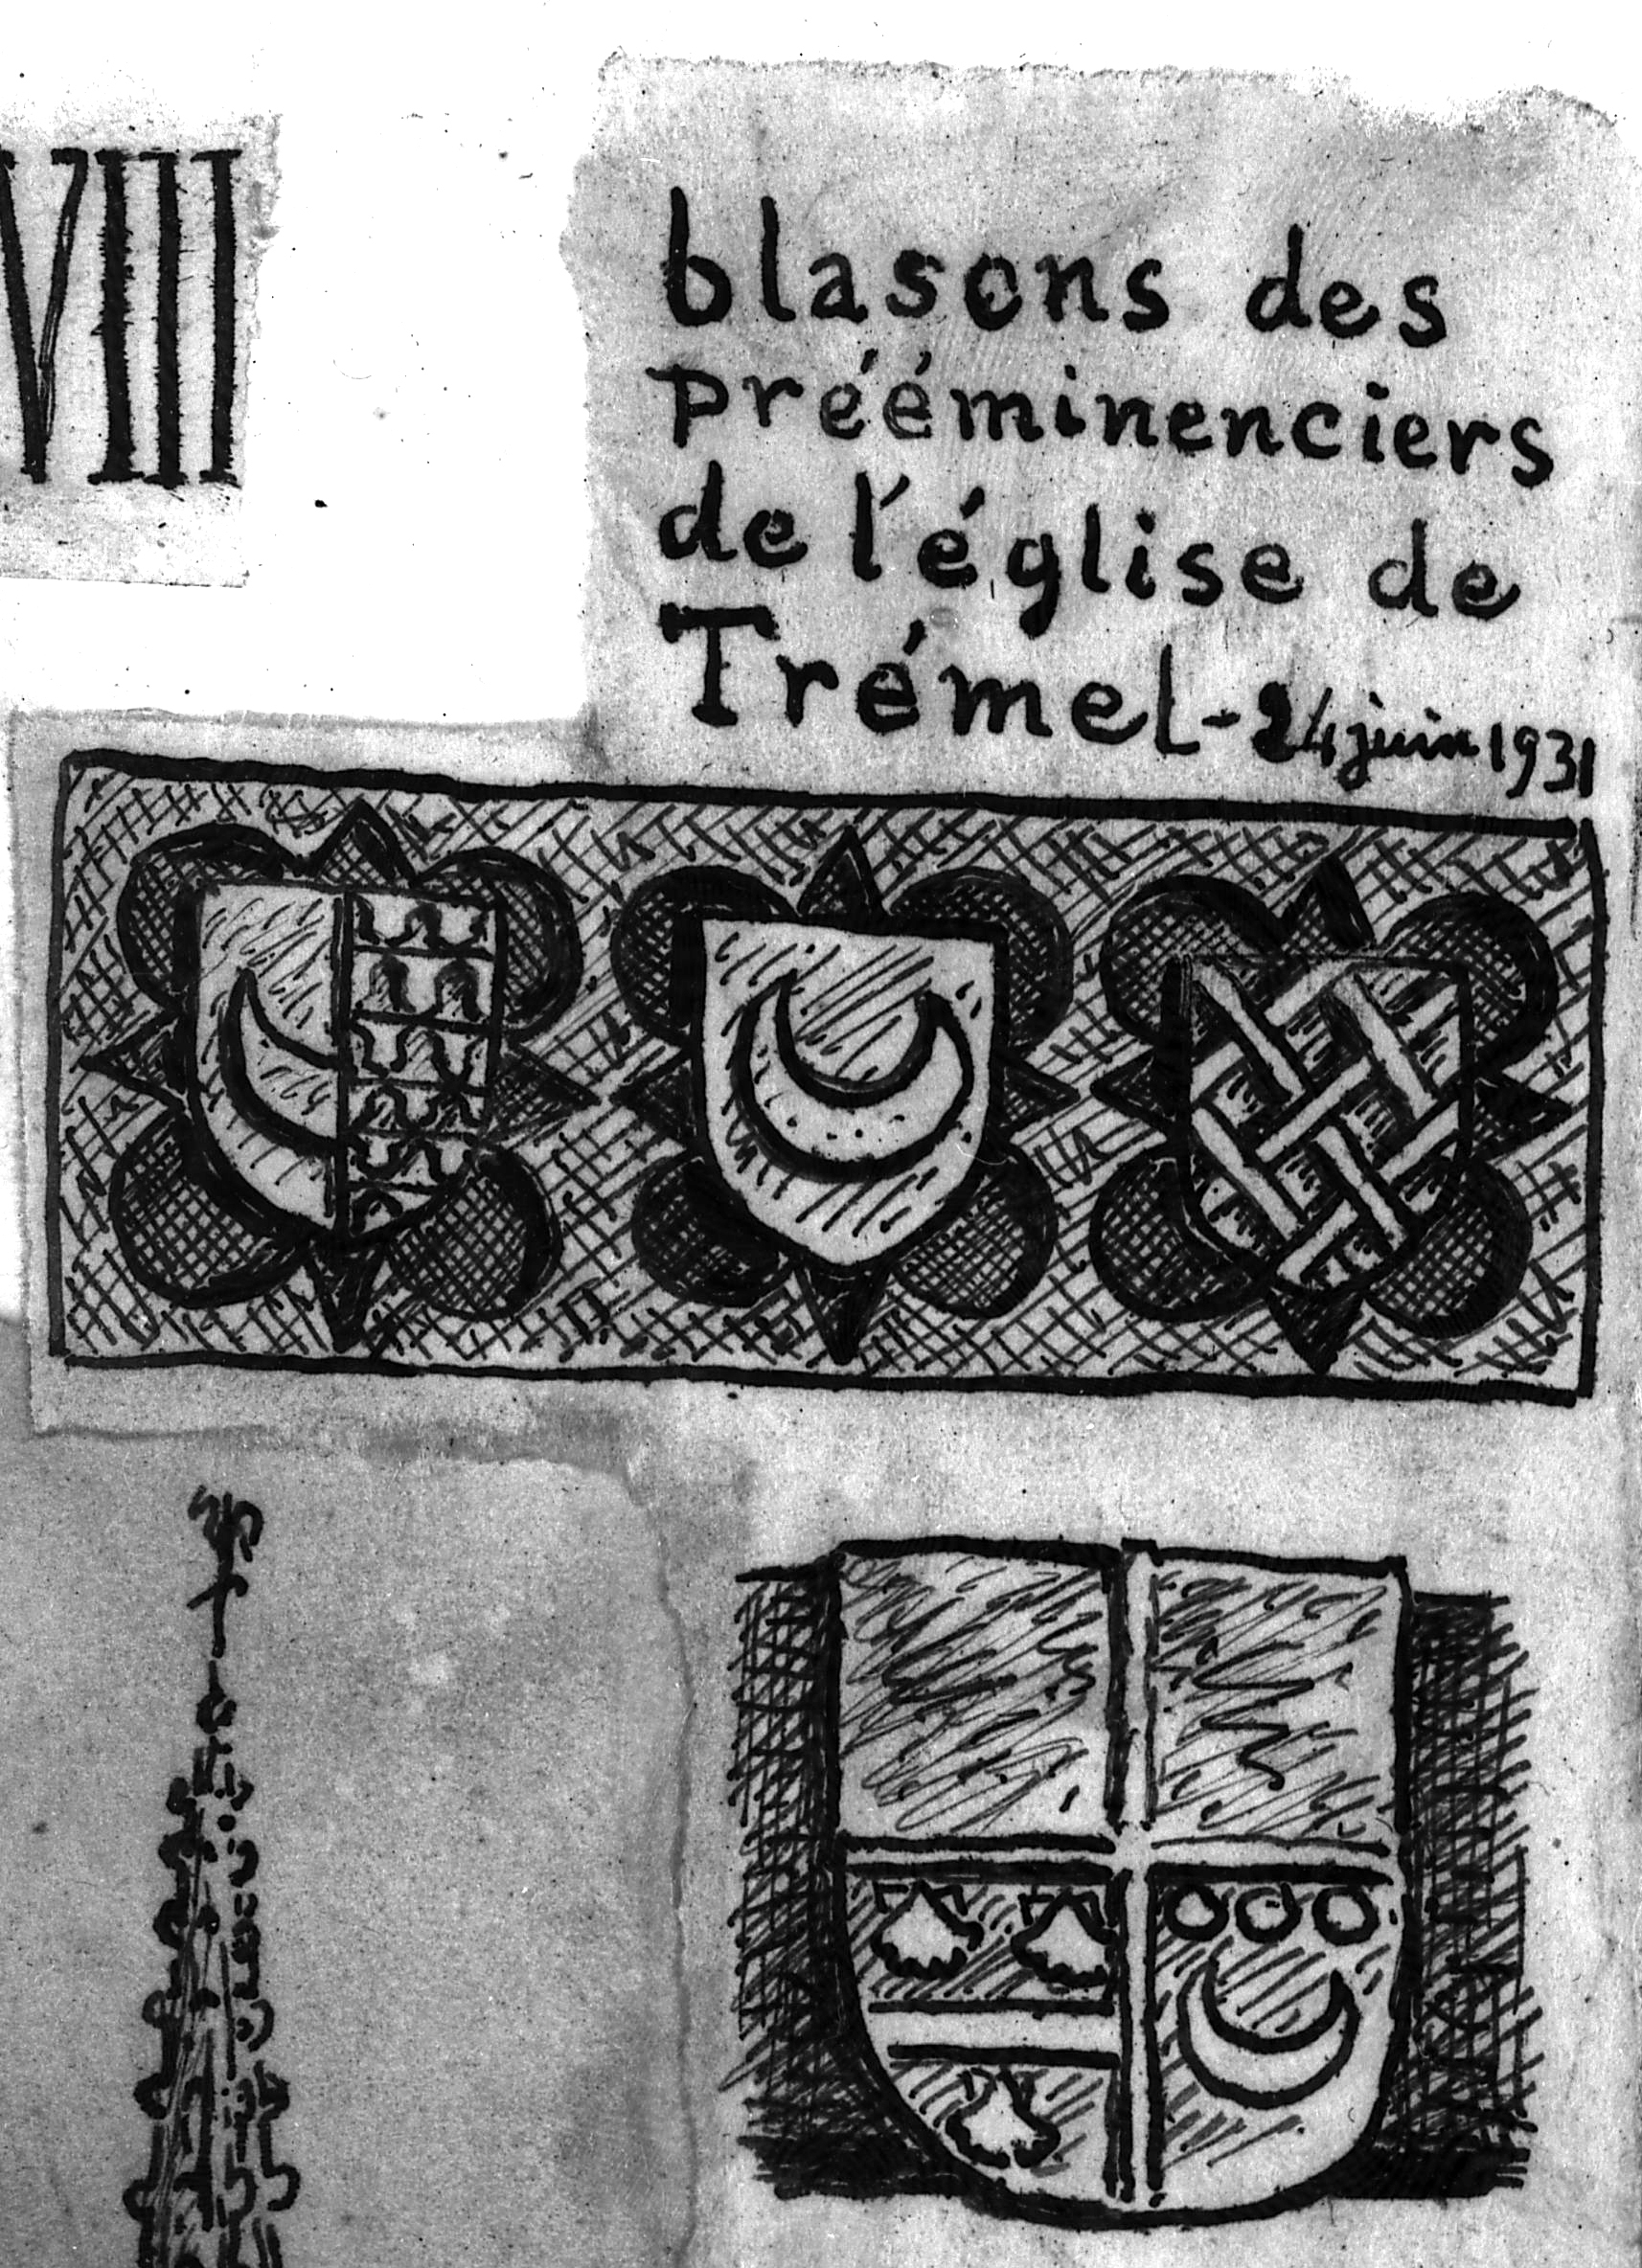 VIII
blasons des
prééminenciers
de l'église de
Trémel - 24 juin 1931